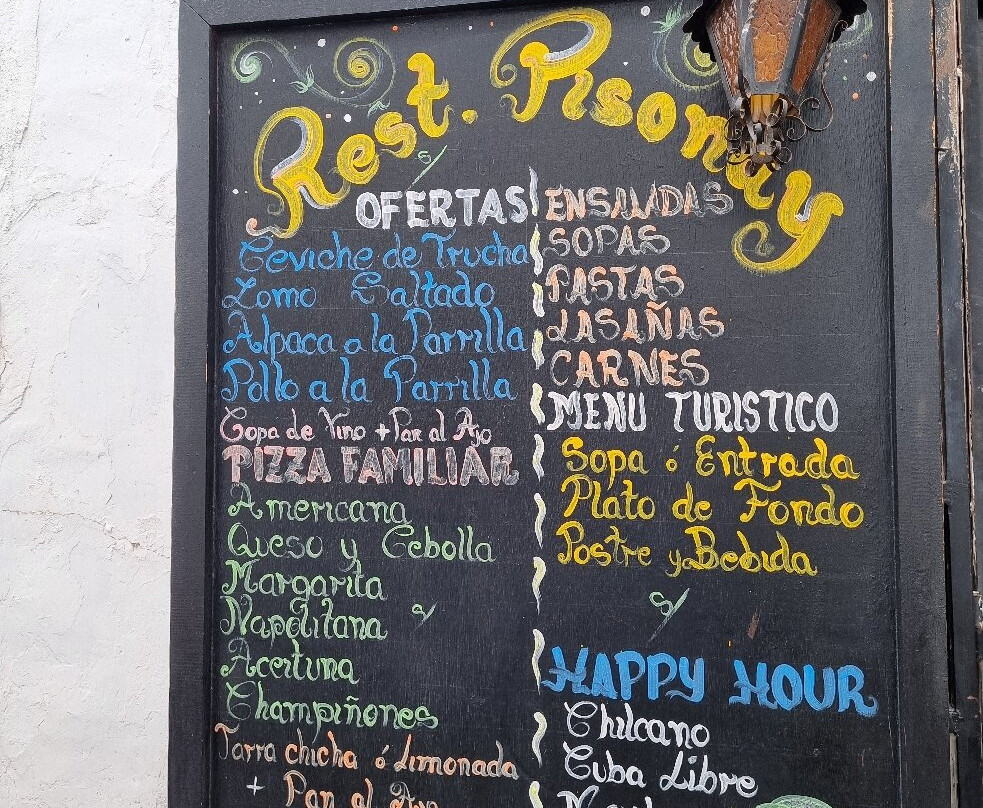 Rest. Pisonay
S/
OFERTAS
Ceviche de Trucha
Lomo Saltado
Alpaca a la Parrilla
Pollo a la Parrilla
Copa de Vino + Pan al Ajo
PIZZA FAMILIAR
Americana
Queso y Cebolla
Margarita
Napolitana S/
Aceituna
Champiñones
Jarra chicha ó Limonada
+ Pan al Ajo
ENSALADAS
SOPAS
PASTAS
LASAÑAS
CARNES
MENU TURISTICO
Sopa ó Entrada
Plato de Fondo
Postre y Bebida
S/
HAPPY HOUR
Chilcano
Cuba Libre